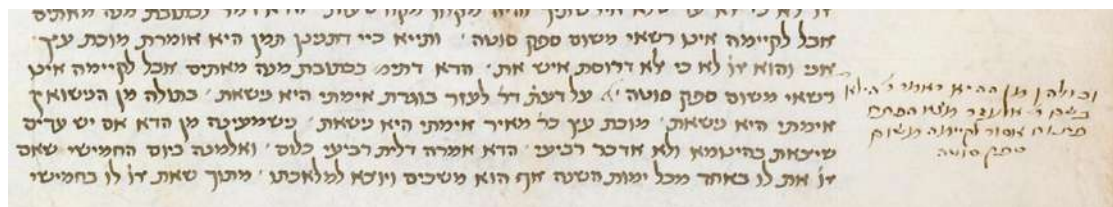 אבל לקיימה אינו רשאי משום ספק סוטה · ותייא כיי דתנינן תמן היא אומרת מוכת עץ ·
אני והוא או' לא כי לא דרוסת איש את · הדא דתימ' בכתובת מנה מאתים אבל לקיימה אינו
רשאי משום ספק סוטה · על דעת דר' לעזר בוגרת אימתי היא נישאת · בתולה מן הנישואין
אימתי היא נישאת · מוכת עץ כר' מאיר אימתי היא נישאת · נישמעינה מן הדא אם יש עדים
שיצאת בהינומא ולא אדכר רביעי · הדא אמרה דלית רביעי כלום · ואלמנה ביום החמישי שאם
או' את לו באחד מכל ימות השנה אף הוא משכים ויוצא למלאכתו · מתוך שאת או' לו בחמישי
וכולהון מן ההיא דאמר ר' הילא
בשם ר' אלעזר מצא הפתח
פתוח אסור לקיימה משום
ספק סוטה